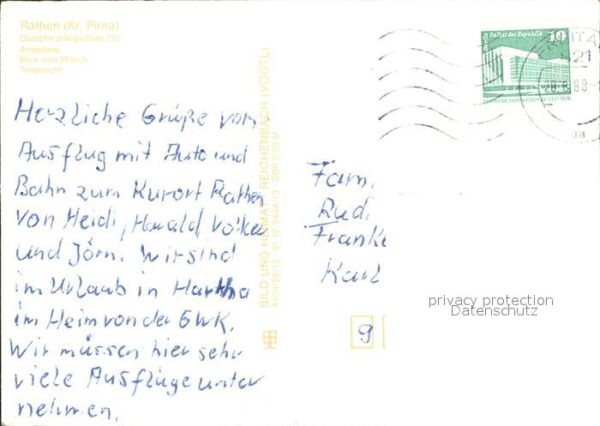 Rathen (Kr. Pirna)
Dampferanlegestelle (2)
Amselsee
Blick zum Mönch
Teilansicht
Herzliche Grüße vom
Ausflug mit Auto und
Bahn zum Kurort Rathen
von Heidi, Harald, Volker
und Jörn. Wir sind
im Urlaub in Hartha
im Heim von der GWK.
Wir müssen hier sehr
viele Ausflüge unter
nehmen.
BILD UND HEIMAT REICHENBACH (VOGTL)
10
Palast der Republik
921
Fam.
Rudi
Franke
Karl
privacy protection
Datenschutz
9